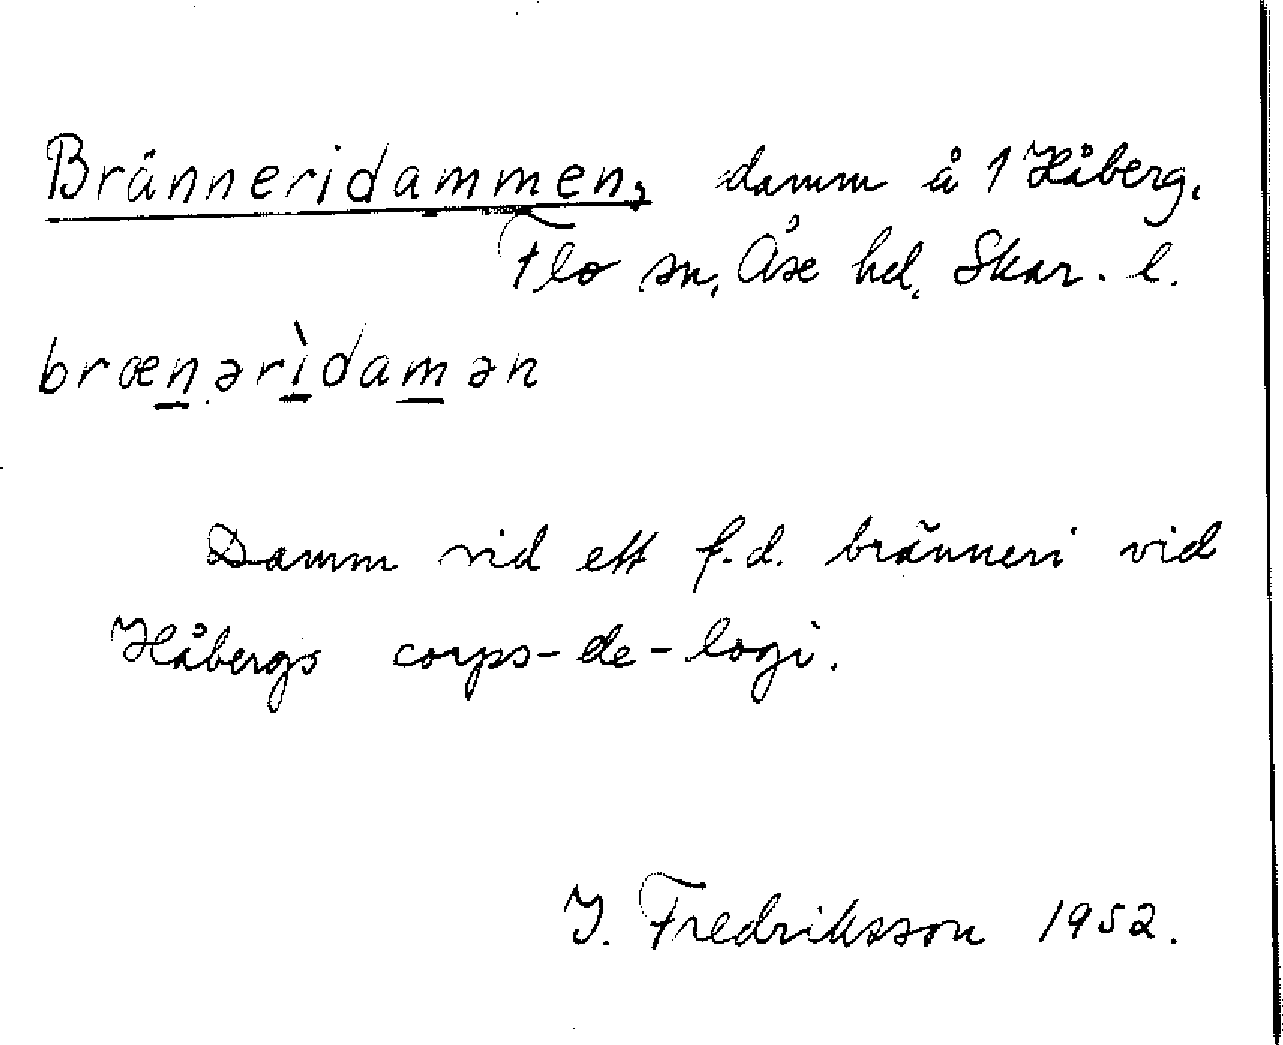 Bränneridammen, damm å 1 Håberg.
Flo sn, Åse hd, Skar. l.
brænərìdamən
Damm vid ett f.d. bränneri vid
Håbergs corps-de-logi.
I. Fredriksson 1952.